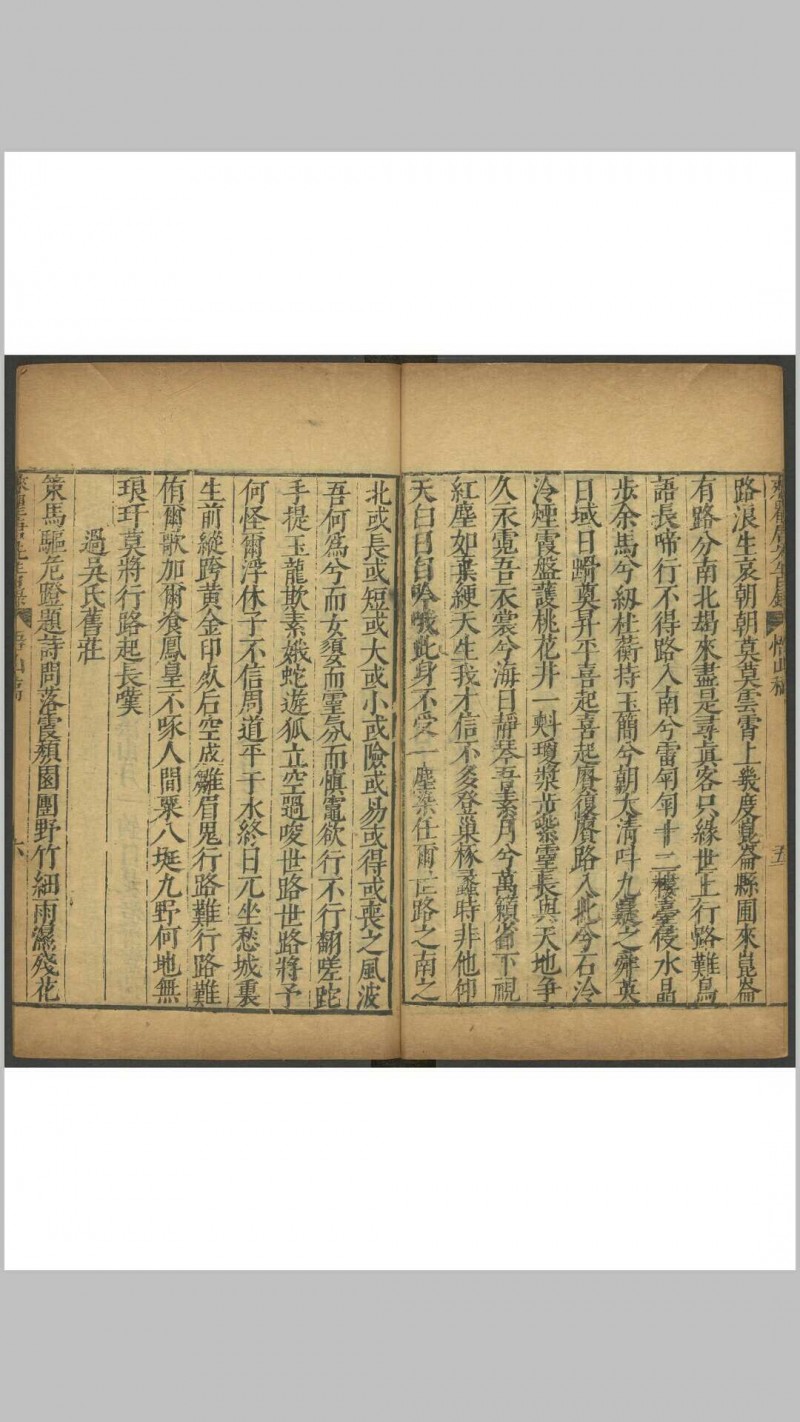 路浪生哀朝朝莫莫雲霄上幾度崑崙縣圃來崑崙
有路分南北朅來盡是尋真客只緣世上行路難鳥
語長啼行不得路入南兮雷匉匉十二樓臺侵水晶
步余馬兮紉杜蘅持玉簡兮朝太清叫九嶷之舜英
日域日躋奠昇平喜起喜起賡復賡路入北兮石泠
泠煙霞盤護桃花井一㪺瓊漿萬紫靈長與天地爭
久永霓吾衣裳兮海日靜琴吾素月兮萬籟省下視
紅塵如棄綆天生我才信不多登巢椓蠡時非他仰
天白日自吟哦此身不受一塵染仕爾世路之南之
北或長或短或大或小或險或易或得或喪之風波
吾何為兮而女嬃而靈氛而慎竈欲行不行翻嗟跎
手提玉龍欺素娥蛇遊狐立空過唆世路世路將予
何怪爾浮休子不信周道平于水終日兀坐愁城裏
生前縱跨黃金印歿后空成雛眉鬼行路難行路難
侑爾歌加爾飡鳳皇不啄人間粟八埏九野何地無
琅玕莫將行路起長嘆
過吳氏舊莊
策馬驅危隥題詩問落霞頹園團野竹細雨濕殘花
五
六